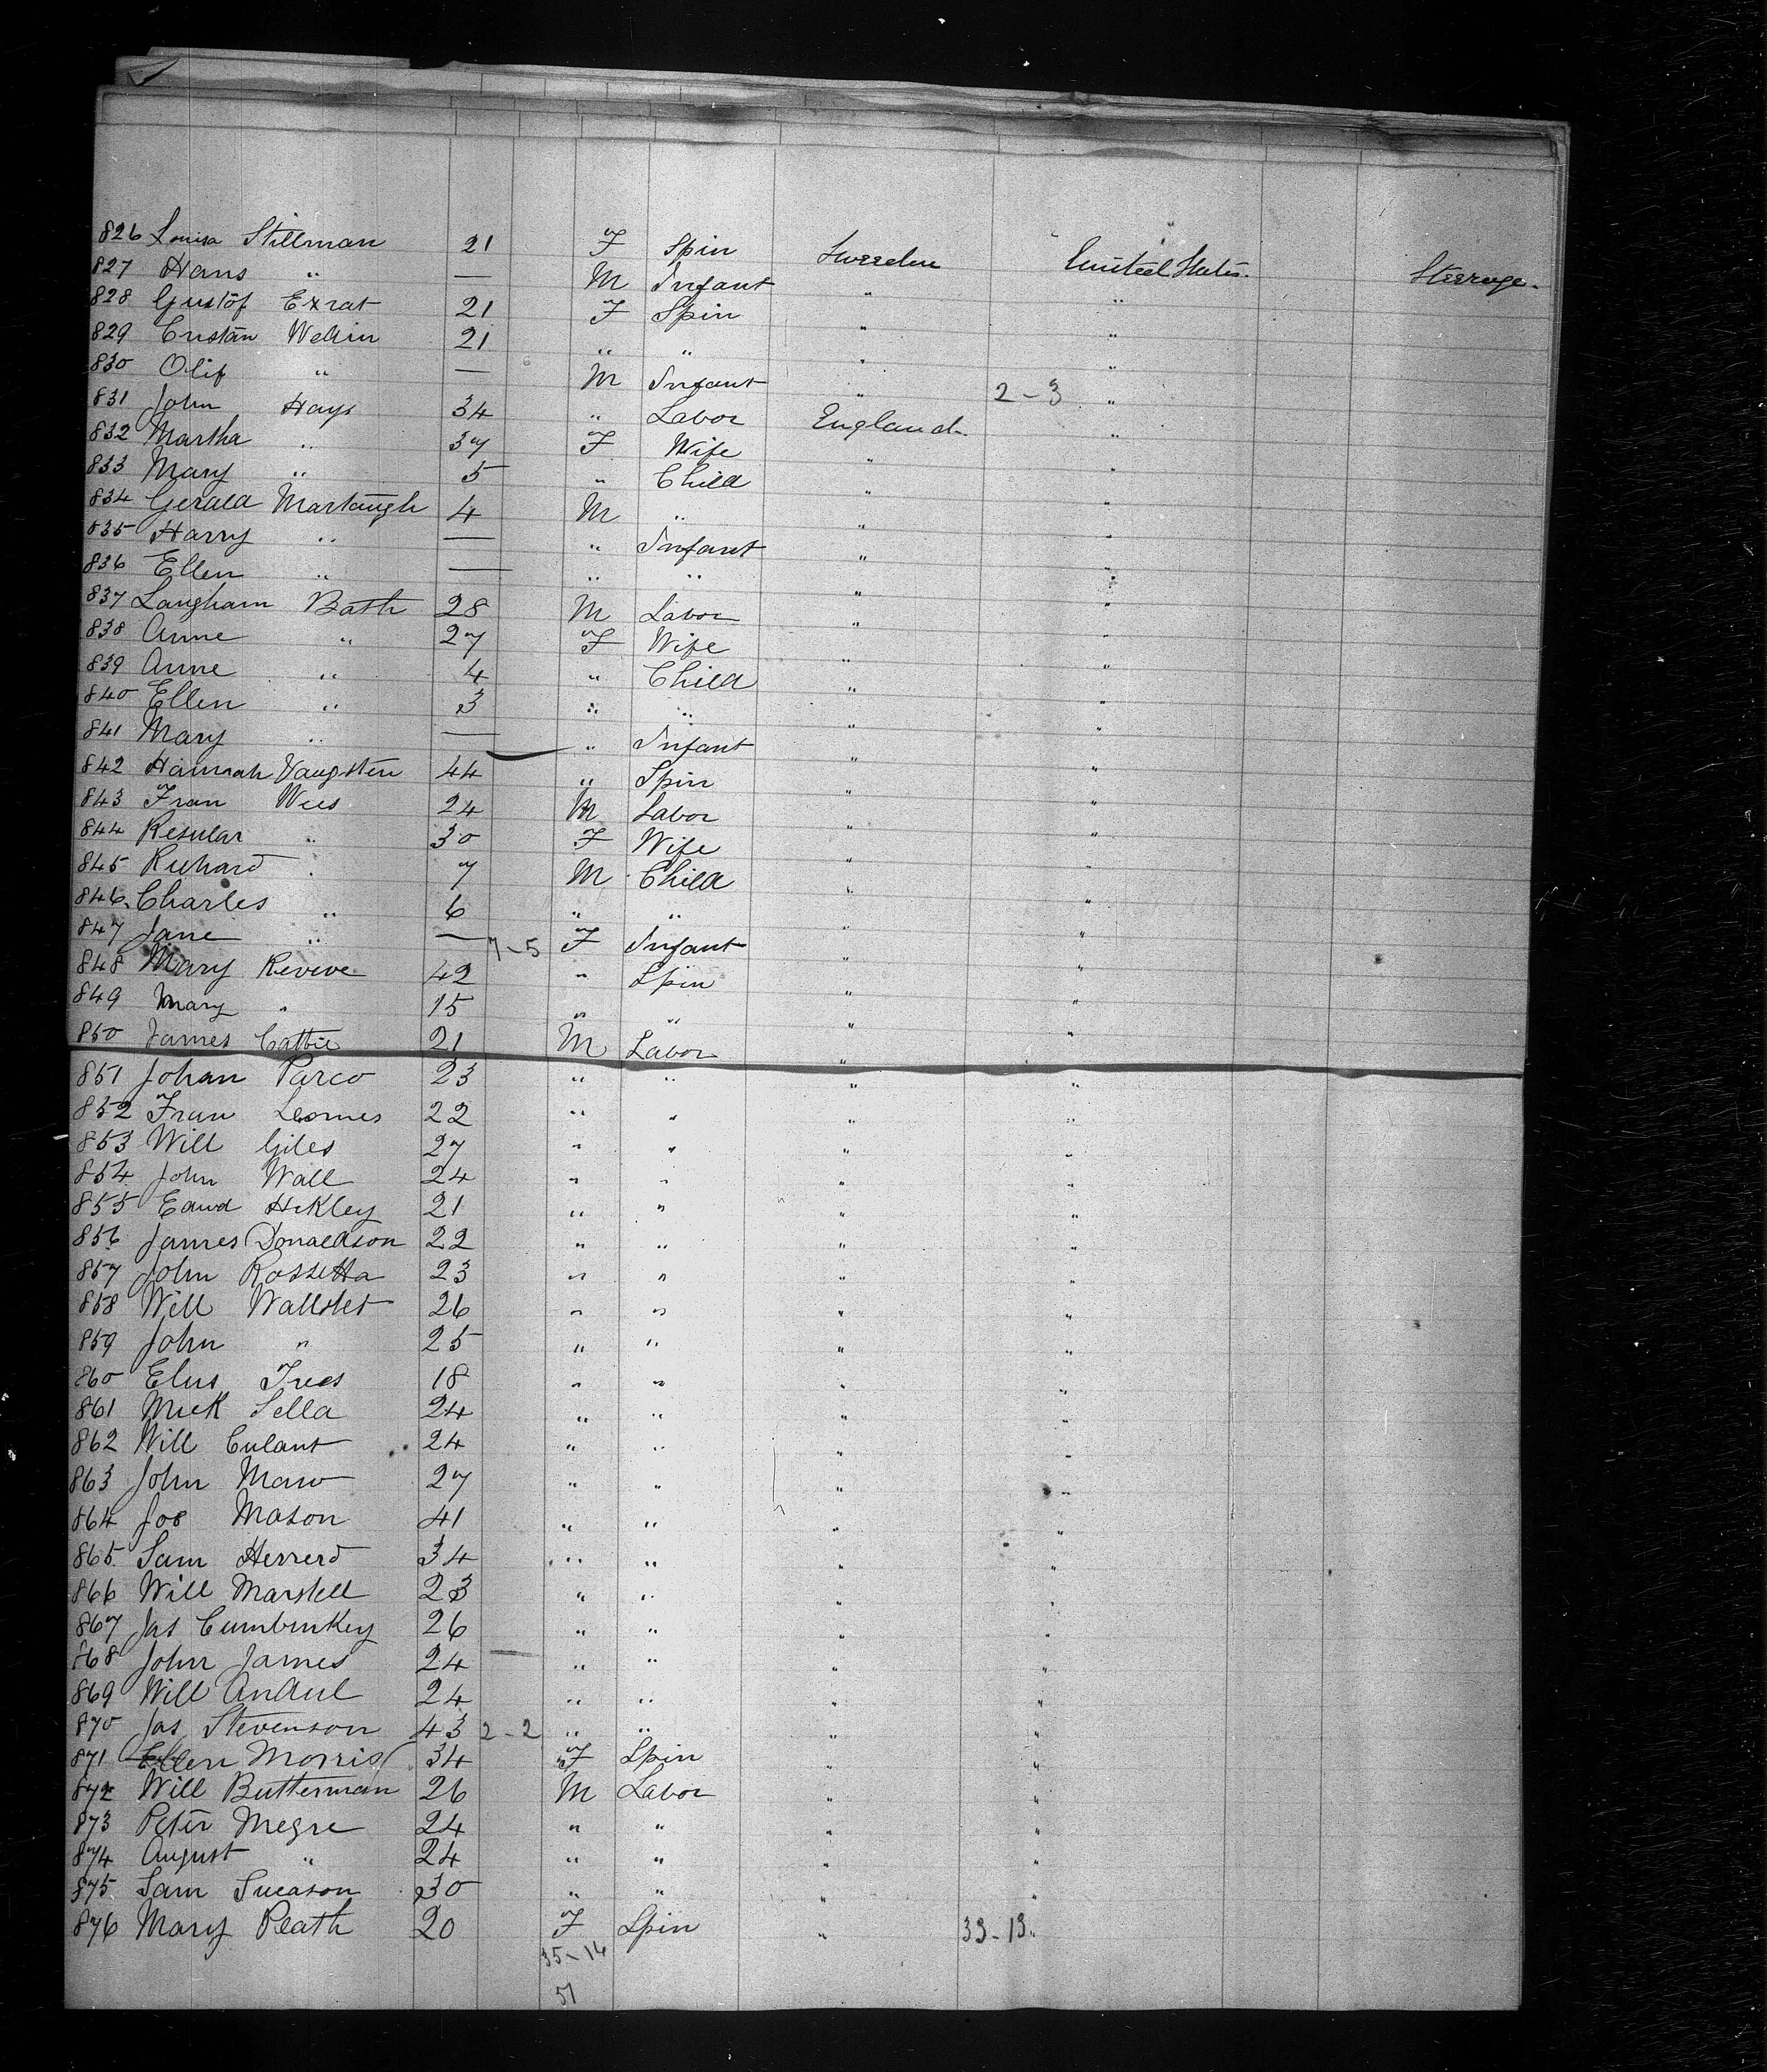 826 Louisa Stillman 21 F Spin Sweeden United States. Steerage.
827 Hans " — M Infant " "
828 Gustof Exrat 21 F Spin " "
829 Cristan Wellin 21 " " " "
830 Olif " — M Infant " 2-3 "
831 John Hays 34 " Labor England. "
832 Martha " 37 F Wife " "
833 Mary " 5 " Child " "
834 Gerald Martaugh 4 M " " "
835 Harry " — " Infant " "
836 Ellen " — " " " "
837 Langham Bath 28 M Labor " "
838 Anne " 27 F Wife " "
839 Anne " 4 " Child " "
840 Ellen " 3 " " " "
841 Mary " — " Infant " "
842 Hannah 44 " Spin " "
843 Fran Wies 24 M Labor " "
844 Resular " 30 F Wife " "
845 Richard " 7 M Child " "
846 Charles " 6 " " " "
847 Jane " — 7-5 F Infant " "
848 Mary Revive 42 " Spin " "
849 Mary " 15 " " " "
850 James Cattie 21 M Labor " "
851 Johan Parco 23 " " " "
852 Fran 22 " " " "
853 Will Giles 27 " " " "
854 John Wall 24 " " " "
855 Eawd Hikley 21 " " " "
856 James Donaldson 22 " " " "
857 John Rossetta 23 " " " "
858 Will Wallstet 26 " " " "
859 John " 25 " " " "
860 Elus 18 " " " "
861 Mick Sella 24 " " " "
862 Will Culant 24 " " " "
863 John Maw 27 " " " "
864 Jos Mason 41 " " " "
865 Sam Herrerd 34 " " " "
866 Will Marstell 23 " " " "
867 Jas 26 " " " "
868 John James 24 " " " "
869 Will 24 " " " "
870 Jas Stevenson 43 2-2 " " " "
871 Ellen Morris 34 F Spin " "
872 Will Butterman 26 M Labor " "
873 Peter Megre 24 " " " "
874 August " 24 " " " "
875 Sam 30 " " " "
876 Mary Peath 20 F Spin " 33-13 "
35-14
51